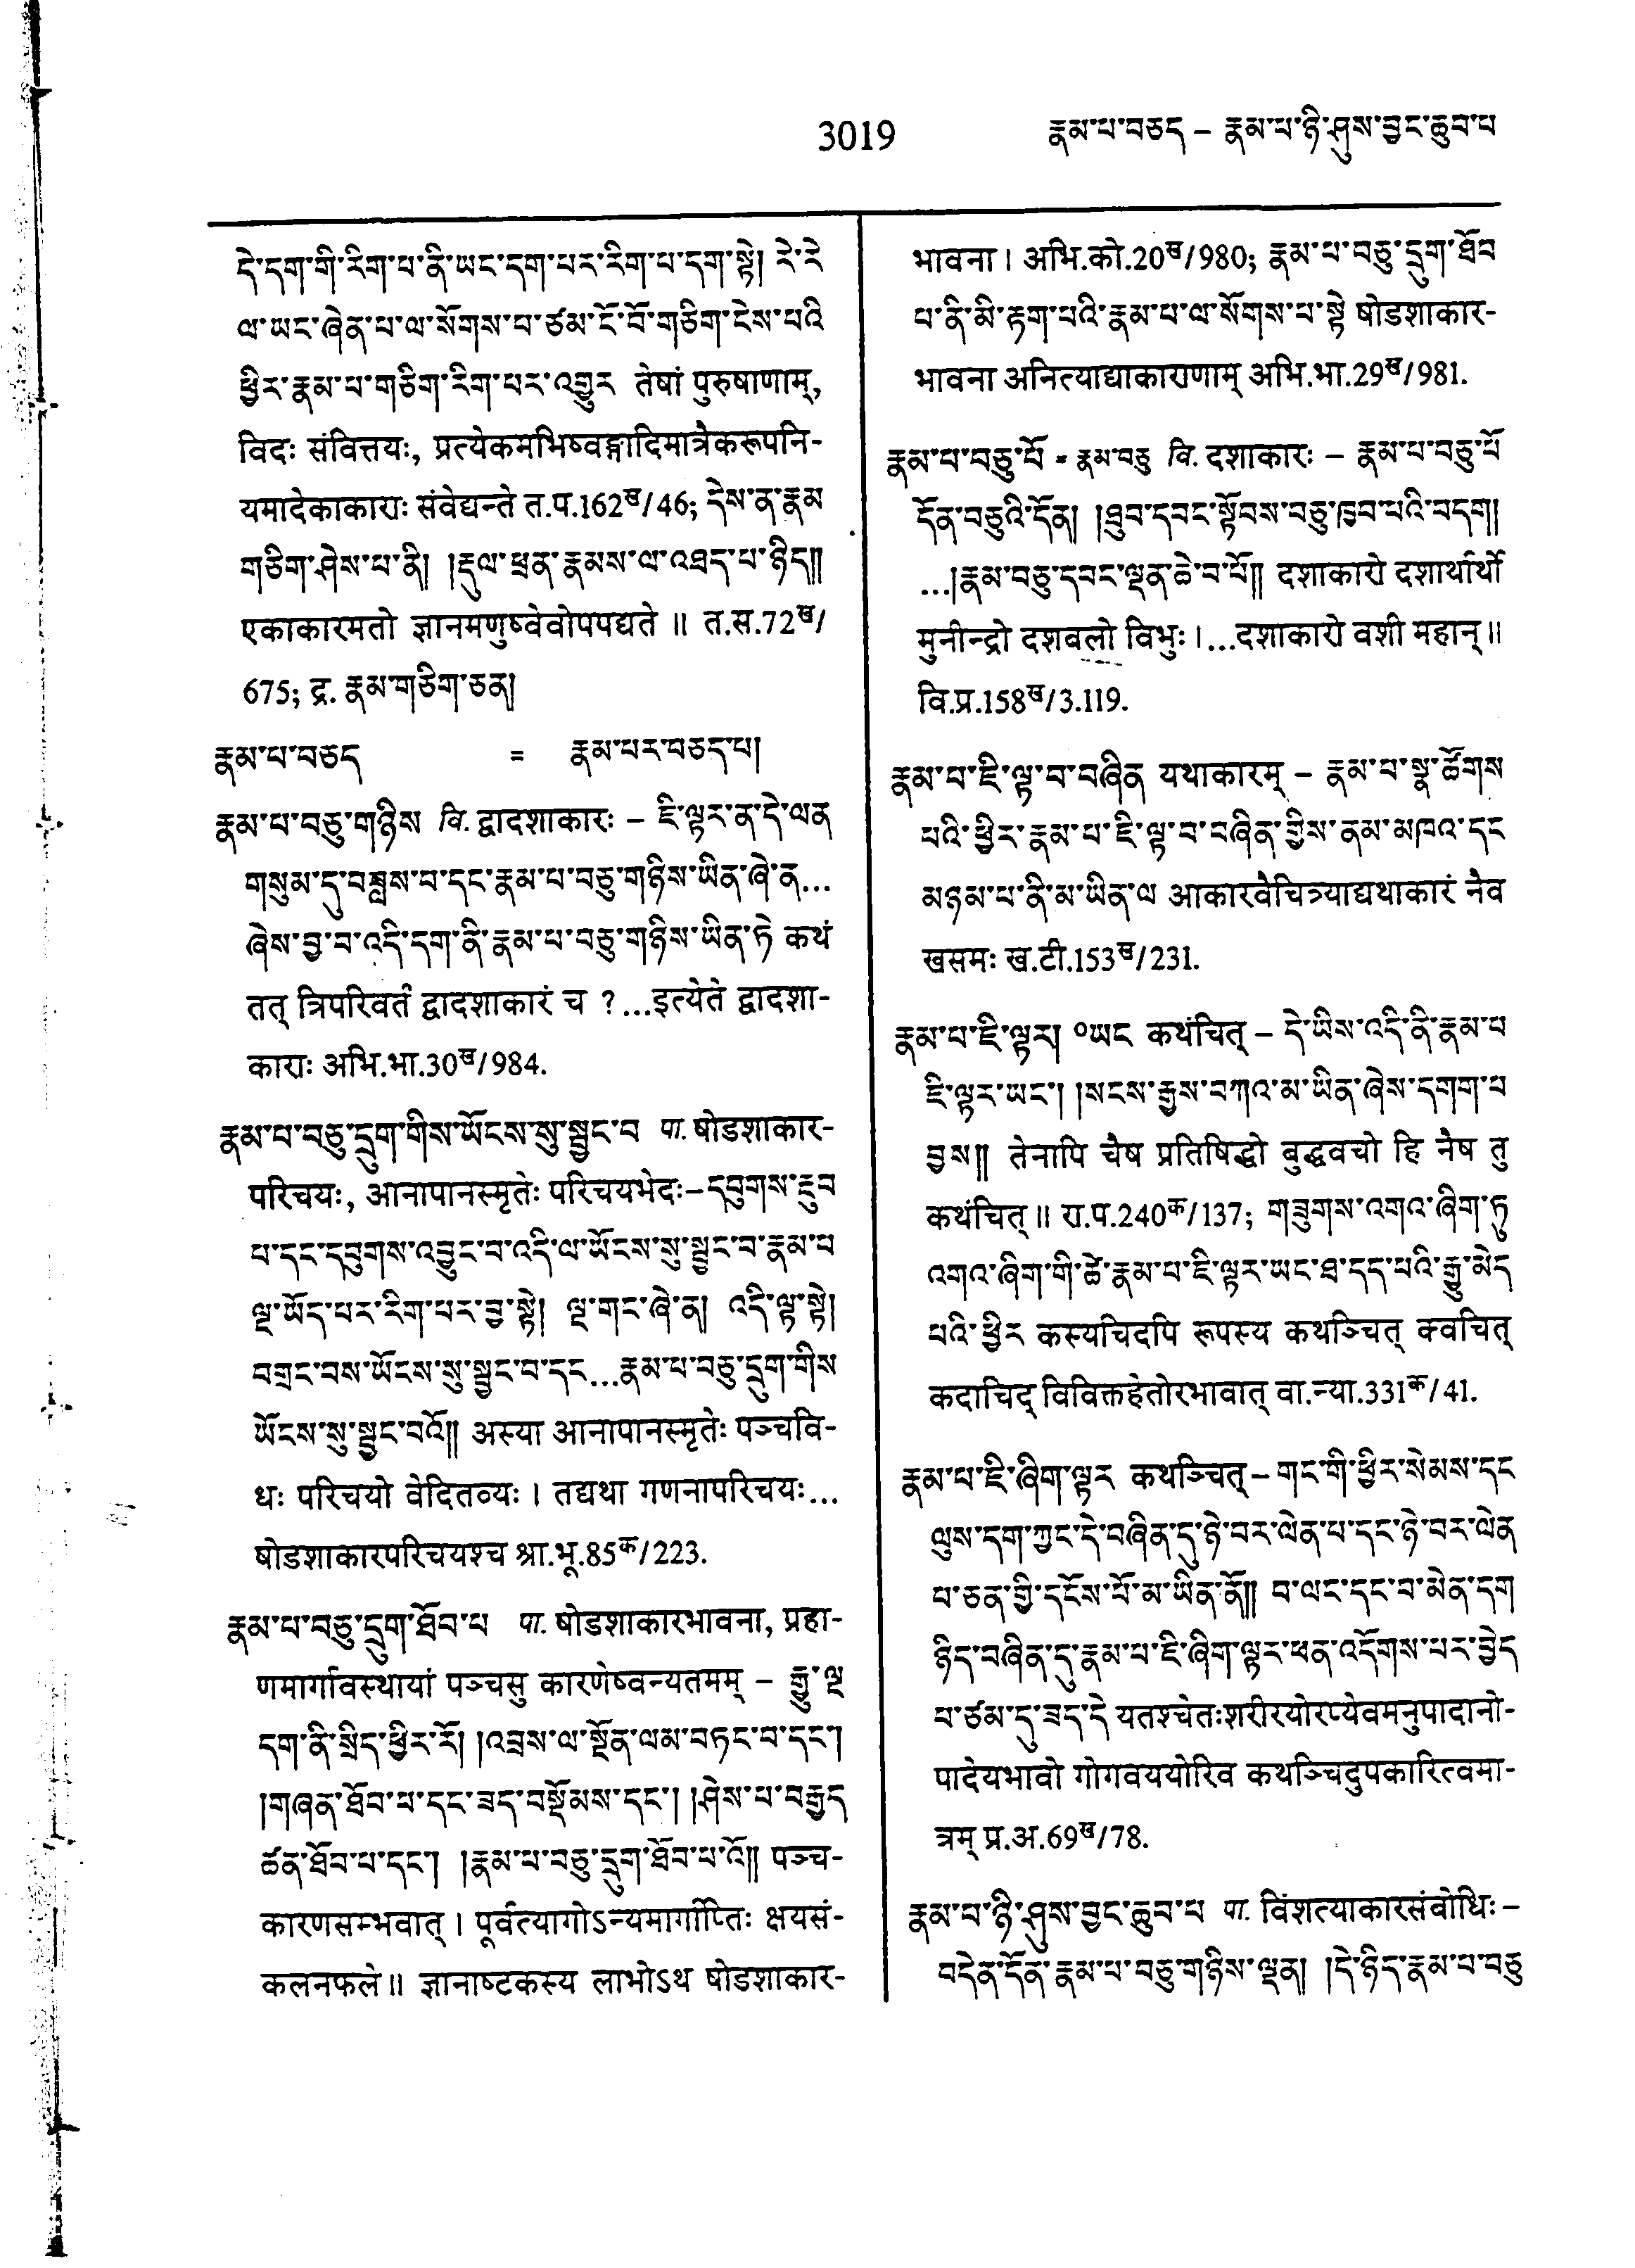 3019
རྣམ་པ་བཅད – རྣམ་པ་ཉི་ཤུས་བྱང་ཆུབ་པ
དེ་དག་གི་རིག་པ་ནི་ཡང་དག་པར་རིག་པ་དག་སྟེ། རེ་རེ
ལ་ཡང་ཞེན་པ་ལ་སོགས་པ་ཙམ་ངོ་བོ་གཅིག་ངེས་པའི
ཕྱིར་རྣམ་པ་གཅིག་རིག་པར་འགྱུར तेषां पुरुषाणाम्,
विदः संवित्तयः, प्रत्येकमभिष्वङ्गादिमात्रैकरूपनि-
यमादेकाकाराः संवेद्यन्ते त.प.162ख/46; དེས་ན་རྣམ
གཅིག་ཤེས་པ་ནི། །རྡུལ་ཕྲན་རྣམས་ལ་འཐད་པ་ཉིད།།
एकाकारमतो ज्ञानमणुष्वेवोपपद्यते ॥ त.स.72ख/
675; द्र. རྣམ་གཅིག་ཅན།
རྣམ་པ་བཅད = རྣམ་པར་བཅད་པ།
རྣམ་པ་བཅུ་གཉིས वि. द्वादशाकारः – ཇི་ལྟར་ན་དེ་ལན
གསུམ་དུ་བཟླས་པ་དང་རྣམ་པ་བཅུ་གཉིས་ཡིན་ཞེ་ན...
ཞེས་བྱ་བ་འདི་དག་ནི་རྣམ་པ་བཅུ་གཉིས་ཡིན་ཏེ कथं
तत् त्रिपरिवर्तं द्वादशाकारं च ?...इत्येते द्वादशा-
काराः अभि.भा.30ख/984.
རྣམ་པ་བཅུ་དྲུག་གིས་ཡོངས་སུ་སྦྱང་བ पा. षोडशाकार-
परिचयः, आनापानस्मृतेः परिचयभेदः–དབུགས་རྔུབ
པ་དང་དབུགས་འབྱུང་བ་འདི་ལ་ཡོངས་སུ་སྦྱང་བ་རྣམ་པ
ལྔ་ཡོད་པར་རིག་པར་བྱ་སྟེ། ལྔ་གང་ཞེ་ན། འདི་ལྟ་སྟེ།
བགྲང་བས་ཡོངས་སུ་སྦྱང་བ་དང...རྣམ་པ་བཅུ་དྲུག་གིས
ཡོངས་སུ་སྦྱང་བའོ།། अस्या आनापानस्मृतेः पञ्चवि-
धः परिचयो वेदितव्यः । तद्यथा गणनापरिचयः...
षोडशाकारपरिचयश्च श्रा.भू.85क/223.
རྣམ་པ་བཅུ་དྲུག་ཐོབ་པ पा. षोडशाकारभावना, प्रहा-
णमार्गावस्थायां पञ्चसु कारणेष्वन्यतमम् – རྒྱུ་ལྔ
དག་ནི་སྲིད་ཕྱིར་རོ། །འབྲས་ལ་སྔོན་ལམ་བཏང་བ་དང་།
།གཞན་ཐོབ་པ་དང་ཟད་བསྡོམས་དང་། །ཤེས་པ་བརྒྱད
ཚན་ཐོབ་པ་དང་། །རྣམ་པ་བཅུ་དྲུག་ཐོབ་པ་འོ།། पञ्च-
कारणसम्भवात् । पूर्वत्यागोऽन्यमार्गाप्तिः क्षयसं-
कलनफले ॥ ज्ञानाष्टकस्य लाभोऽथ षोडशाकार-
भावना । अभि.को.20ख/980; རྣམ་པ་བཅུ་དྲུག་ཐོབ
པ་ནི་མི་རྟག་པའི་རྣམ་པ་ལ་སོགས་པ་སྟེ षोडशाकार-
भावना अनित्याद्याकाराणाम् अभि.भा.29ख/981.
རྣམ་པ་བཅུ་པོ = རྣམ་བཅུ वि. दशाकारः – རྣམ་པ་བཅུ་པོ
དོན་བཅུའི་དོན། །ཐུབ་དབང་སྟོབས་བཅུ་ཁྱབ་པའི་བདག།
...།རྣམ་བཅུ་དབང་ལྡན་ཆེ་བ་པོ།། दशाकारो दशार्थार्थो
मुनीन्द्रो दशबलो विभुः ।...दशाकारो वशी महान् ॥
वि.प्र.158ख/3.119.
རྣམ་པ་ཇི་ལྟ་བ་བཞིན यथाकारम् – རྣམ་པ་སྣ་ཚོགས
པའི་ཕྱིར་རྣམ་པ་ཇི་ལྟ་བ་བཞིན་གྱིས་ནམ་མཁའ་དང
མཉམ་པ་ནི་མ་ཡིན་ལ आकारवैचित्र्याद्यथाकारं नैव
खसमः ख.टी.153ख/231.
རྣམ་པ་ཇི་ལྟར། ॰ཡང कथंचित् – དེ་ཡིས་འདི་ནི་རྣམ་པ
ཇི་ལྟར་ཡང་། །སངས་རྒྱས་བཀའ་མ་ཡིན་ཞེས་དགག་པ
བྱས།། तेनापि चैष प्रतिषिद्धो बुद्धवचो हि नैष तु
कथंचित् ॥ रा.प.240क/137; གཟུགས་འགའ་ཞིག་ཏུ
འགའ་ཞིག་གི་ཚེ་རྣམ་པ་ཇི་ལྟར་ཡང་ཐ་དད་པའི་རྒྱུ་མེད
པའི་ཕྱིར कस्यचिदपि रूपस्य कथञ्चित् क्वचित्
कदाचिद् विविक्तहेतोरभावात् वा.न्या.331क/41.
རྣམ་པ་ཇི་ཞིག་ལྟར कथञ्चित् – གང་གི་ཕྱིར་སེམས་དང
ལུས་དག་ཀྱང་དེ་བཞིན་དུ་ཉེ་བར་ལེན་པ་དང་ཉེ་བར་ལེན
པ་ཅན་གྱི་དངོས་པོ་མ་ཡིན་ནོ།། བ་ལང་དང་བ་མེན་དག
ཉིད་བཞིན་དུ་རྣམ་པ་ཇི་ཞིག་ལྟར་ཕན་འདོགས་པར་བྱེད
པ་ཙམ་དུ་ཟད་དེ यतश्चेतःशरीरयोरप्येवमनुपादानो-
पादेयभावो गोगवययोरिव कथञ्चिदुपकारित्वमा-
त्रम् प्र.अ.69ख/78.
རྣམ་པ་ཉི་ཤུས་བྱང་ཆུབ་པ पा. विंशत्याकारसंबोधिः –
བདེན་དོན་རྣམ་པ་བཅུ་གཉིས་ལྡན། །དེ་ཉིད་རྣམ་པ་བཅུ